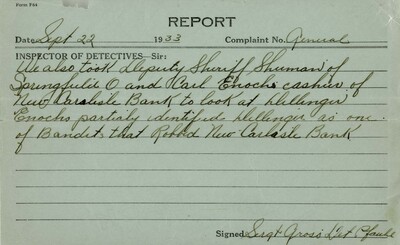 Form F44
REPORT
Date Sept 22 1933 Complaint No. General
INSPECTOR OF DETECTIVES—Sir:
We also took Deputy Sheriff Shuman of
Springfield O and Carl Enochs cashier of
New Carslisle Bank to look at Dellinger
Enochs partialy identifed Dellinger as one
of Bandits that Robbed New Carlisle Bank
Signed Sergt Gross Det